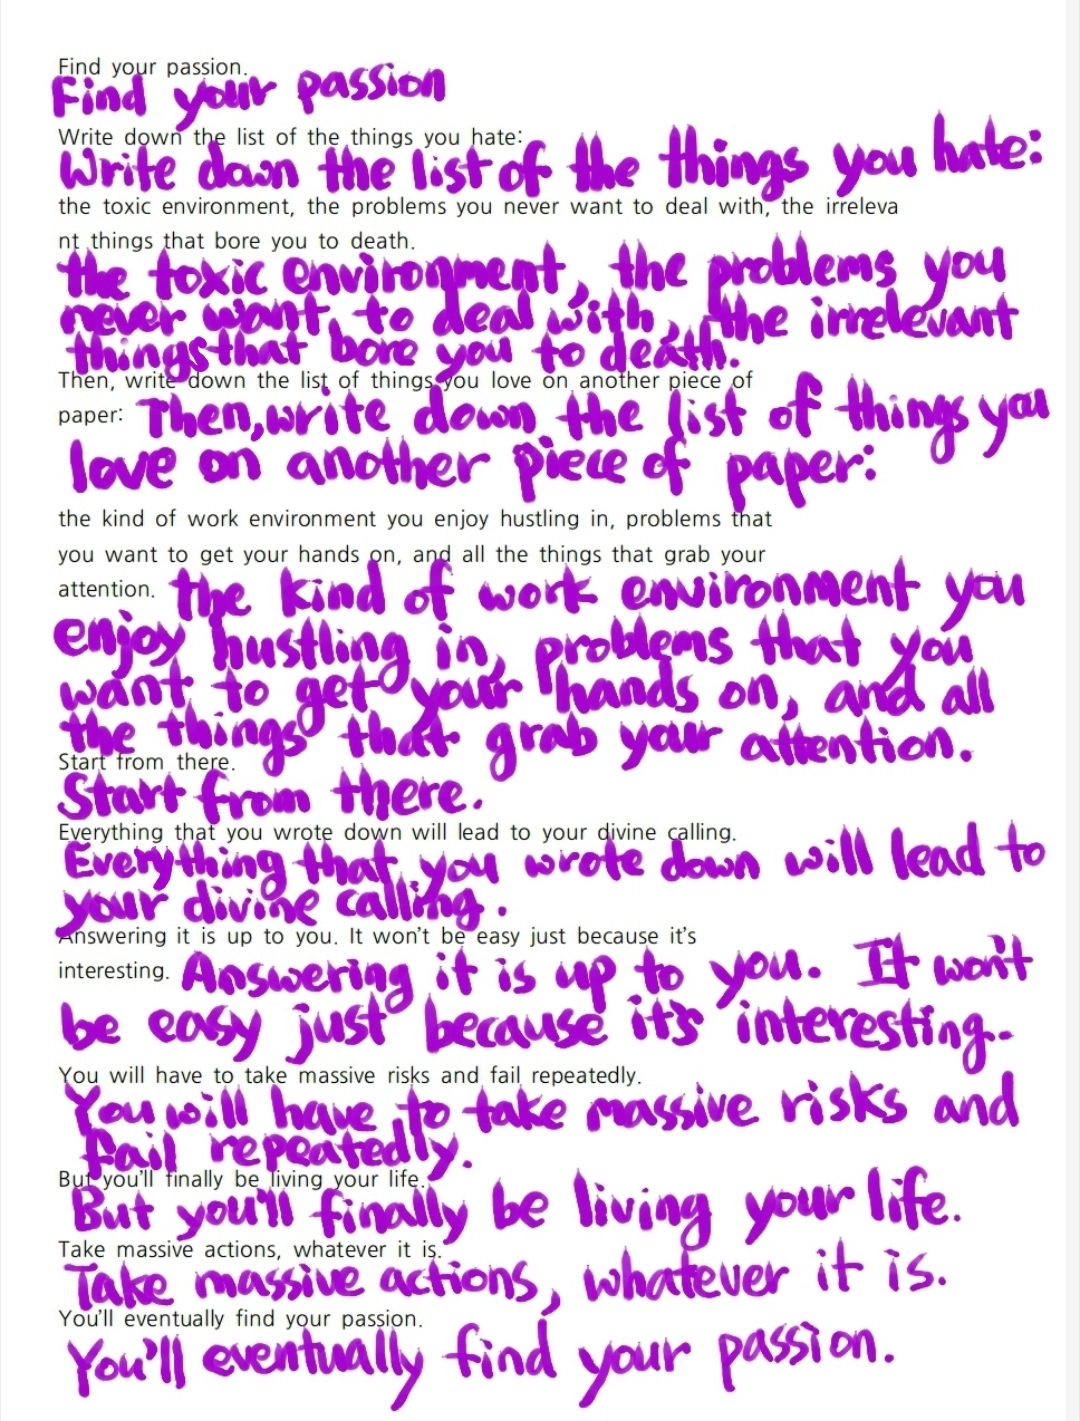 Find your passion.
Find your passion
Write down the list of the things you hate:
Write down the list of the things you hate:
the toxic environment, the problems you never want to deal with, the irreleva
nt things that bore you to death.
the toxic environment, the problems you
never want to deal with, the irrelevant
things that bore you to death.
Then, write down the list of things you love on another piece of
paper: Then, write down the list of things you
love on another piece of paper:
the kind of work environment you enjoy hustling in, problems that
you want to get your hands on, and all the things that grab your
attention. the kind of work environment you
enjoy hustling in, problems that you
want to get your hands on, and all
the things that grab your attention.
Start from there.
Start from there.
Everything that you wrote down will lead to your divine calling.
Everything that you wrote down will lead to
your divine calling.
Answering it is up to you. It won't be easy just because it's
interesting. Answering it is up to you. It won't
be easy just because it's interesting.
You will have to take massive risks and fail repeatedly.
You will have to take massive risks and
fail repeatedly.
But you'll finally be living your life.
But you'll finally be living your life.
Take massive actions, whatever it is.
Take massive actions, whatever it is.
You'll eventually find your passion.
You'll eventually find your passion.